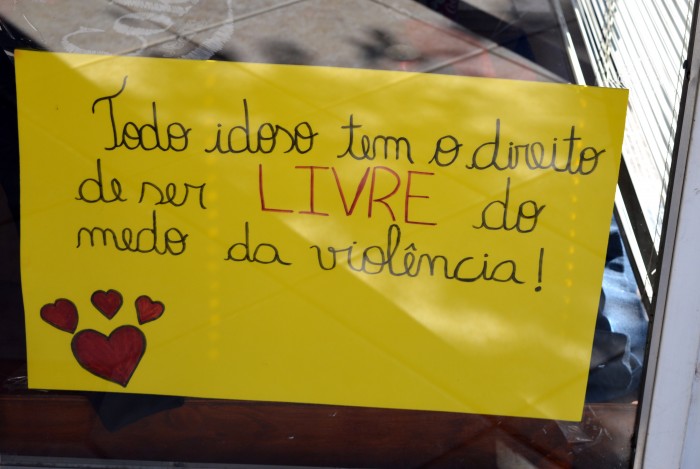 Todo idoso tem o direito
de ser LIVRE do
medo da violência!